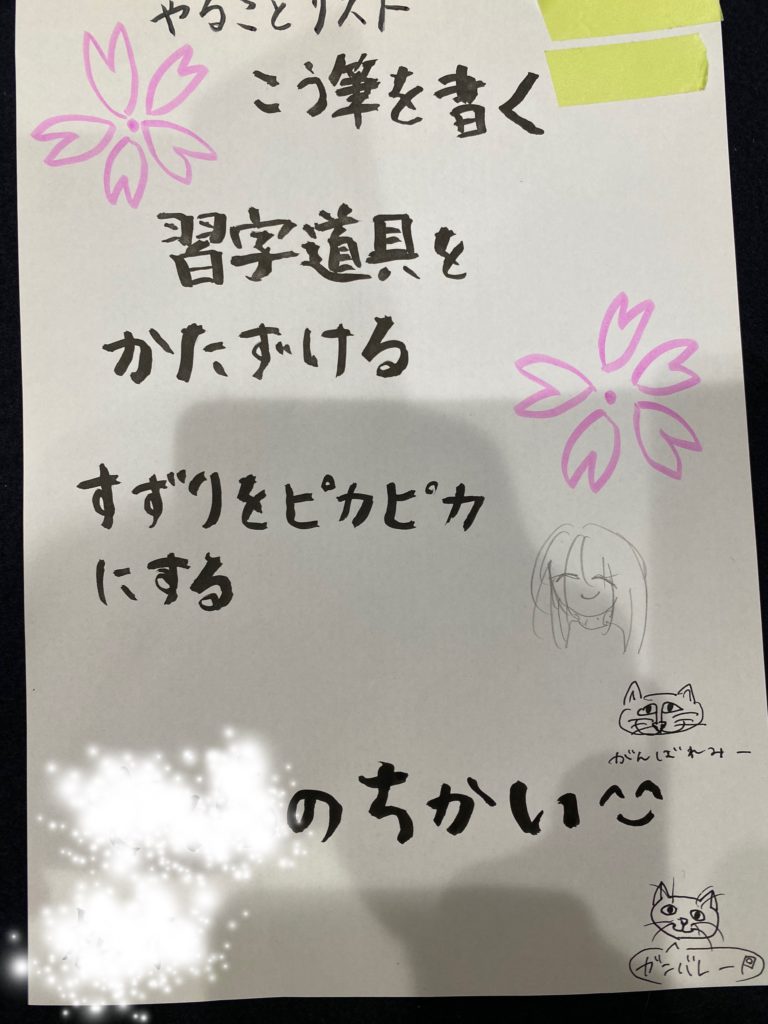 やることリスト
こう筆を書く
習字道具を
かたずける
すずりをピカピカ
にする
がんばれみー
のちかい^^
ガンバレー